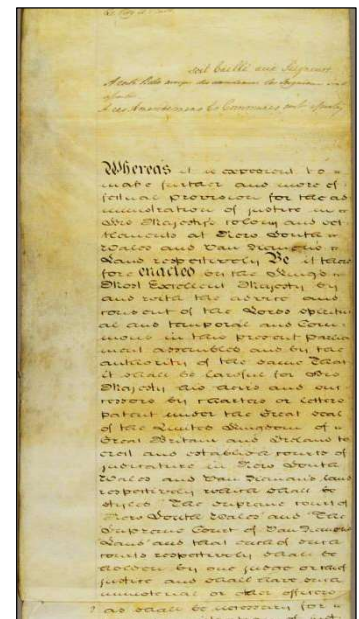 Le Roy le Veult
soit baillé aux Seigneurs
A ceste Bille avecque des amendemens les Seigneurs sont
assentus
A ces Amendemens les Communes sont assentus
Whereas it is expedient to
make further and more ef
fectual provision for the ad
ministration of justice in
His Majesty's colony and set
tlements at New South
Wales and Van Diemen's
Land respectively Be it there
fore enacted by the King's
Most Excellent Majesty by
and with the advice and
consent of the Lords spiritu
al and temporal and Com
mons in this present parlia
ment assembled and by the
authority of the same That
it shall be lawful for His
Majesty his heirs and suc
cessors by charters or letters
patent under the Great Seal
of the United Kingdom of
Great Britain and Ireland to
erect and establish courts of
judicature in New South
Wales and Van Dieman's Land
respectively which shall be
styled The supreme court of
New South Wales and The
Supreme Court of Van Diemens
Land and that each of such
courts respectively shall be
holden by one judge or chief
justice and shall have such
ministerial or other officers
as shall be necessary for